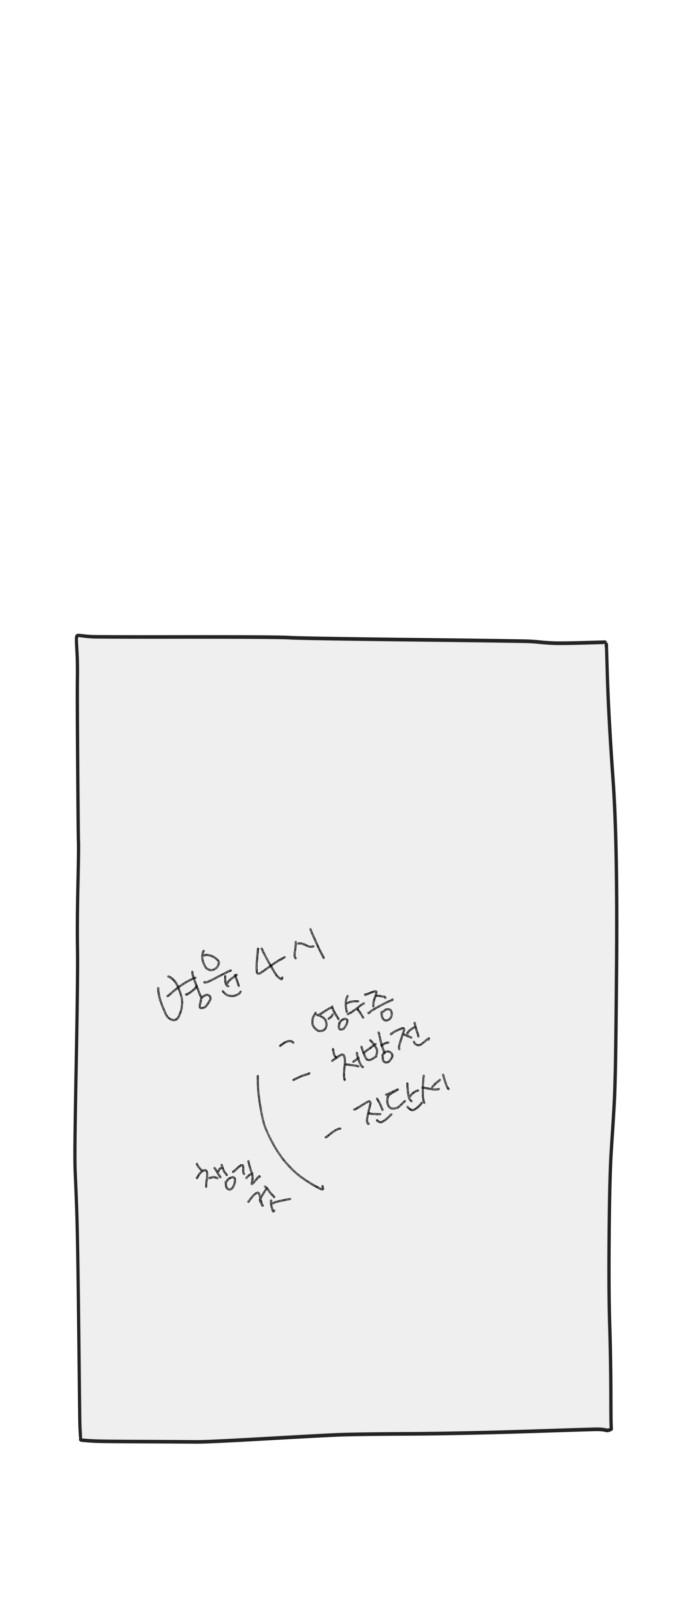 병원 4시
- 영수증
- 처방전
- 진단서
챙길
것